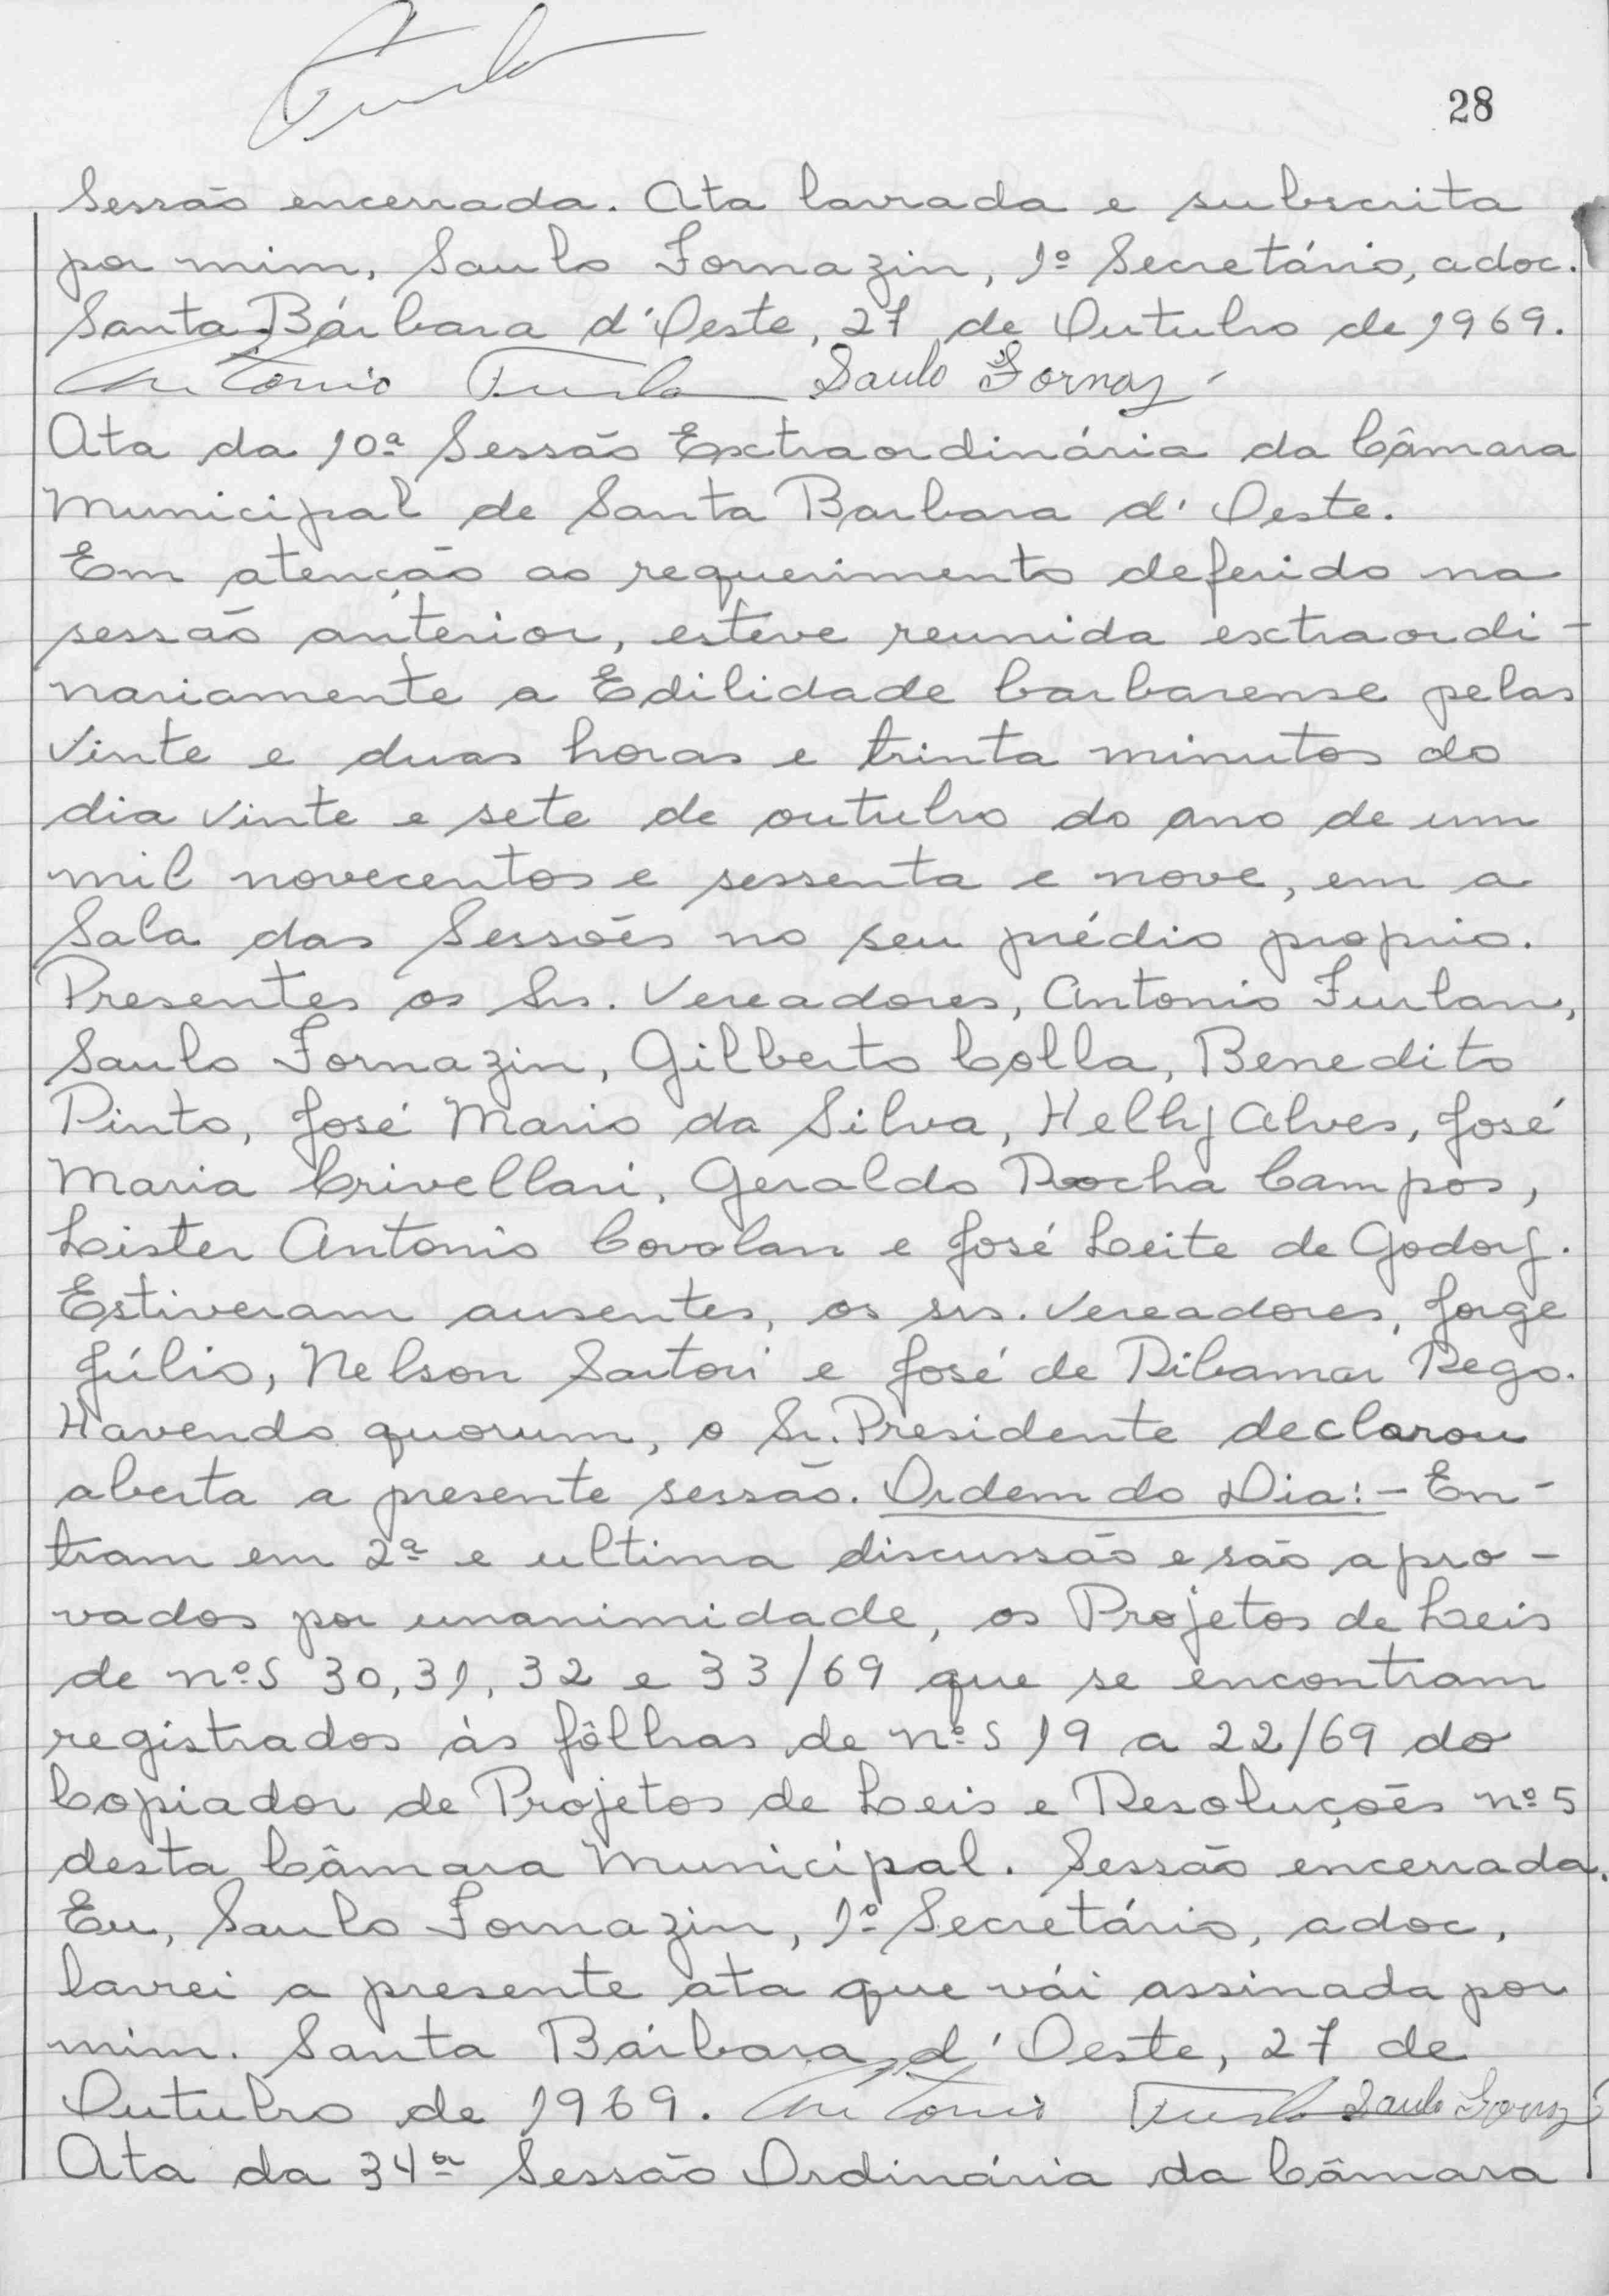 28
Sessão encerrada. Ata lavrada e subscrita
por mim, Saulo Fornazin, 1º Secretário, adoc.
Santa Bárbara d'Oeste, 27 de Outubro de 1969.
Antonio Furlan Saulo Fornaz
Ata da 10ª Sessão Extraordinária da Câmara
Municipal de Santa Barbara d'Oeste.
Em atenção ao requerimento deferido na
sessão anterior, esteve reunida extraordi-
nariamente a Edilidade barbarense pelas
vinte e duas horas e trinta minutos do
dia vinte e sete de outubro do ano de um
mil novecentos e sessenta e nove, em a
Sala das Sessões no seu prédio proprio.
Presentes os Srs. Vereadores, Antonio Furlan,
Saulo Fornazin, Gilberto Colla, Benedito
Pinto, José Mario da Silva, Helly Alves, José
Maria Crivellari, Geraldo Rocha Campos,
Lister Antonio Covolan e José Leite de Godoy.
Estiveram ausentes, os srs. Vereadores, Jorge
Júlio, Nelson Sartori e José de Ribamar Rego.
Havendo quorum, o Sr. Presidente declarou
aberta a presente sessão. Ordem do Dia:- En-
tram em 2ª e ultima discussão e são apro-
vados por unanimidade, os Projetos de Leis
de nºs 30, 31, 32 e 33/69 que se encontram
registrados às fôlhas de nºs 19 a 22/69 do
Copiador de Projetos de Leis e Resoluções nº 5
desta Câmara Municipal. Sessão encerrada.
Eu, Saulo Fornazin, 1º Secretário, adoc,
lavrei a presente ata que vái assinada por
mim. Santa Bárbara d'Oeste, 27 de
Outubro de 1969. Antonio Furlan Saulo Fornaz
Ata da 34ª Sessão Ordinária da Câmara